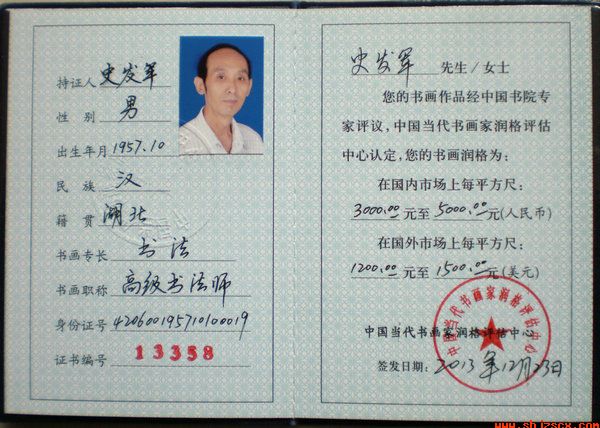 持证人 史发军
性别 男
出生年月 1957.10
民族 汉
籍贯 湖北
书画专长 书法
书画职称 高级书法师
身份证号 420600195710100019
证书编号 13358
史发军 先生/女士
您的书画作品经中国书院专
家评议,中国当代书画家润格评估
中心认定,您的书画润格为:
在国内市场上每平方尺:
3000.00元至5000.00元(人民币)
在国外市场上每平方尺:
1200.00元至1500.00元(美元)
中国当代书画家润格评估中心
中国当代书画家润格评估中心
签发日期:2013年12月23日
www.shjzscx.com